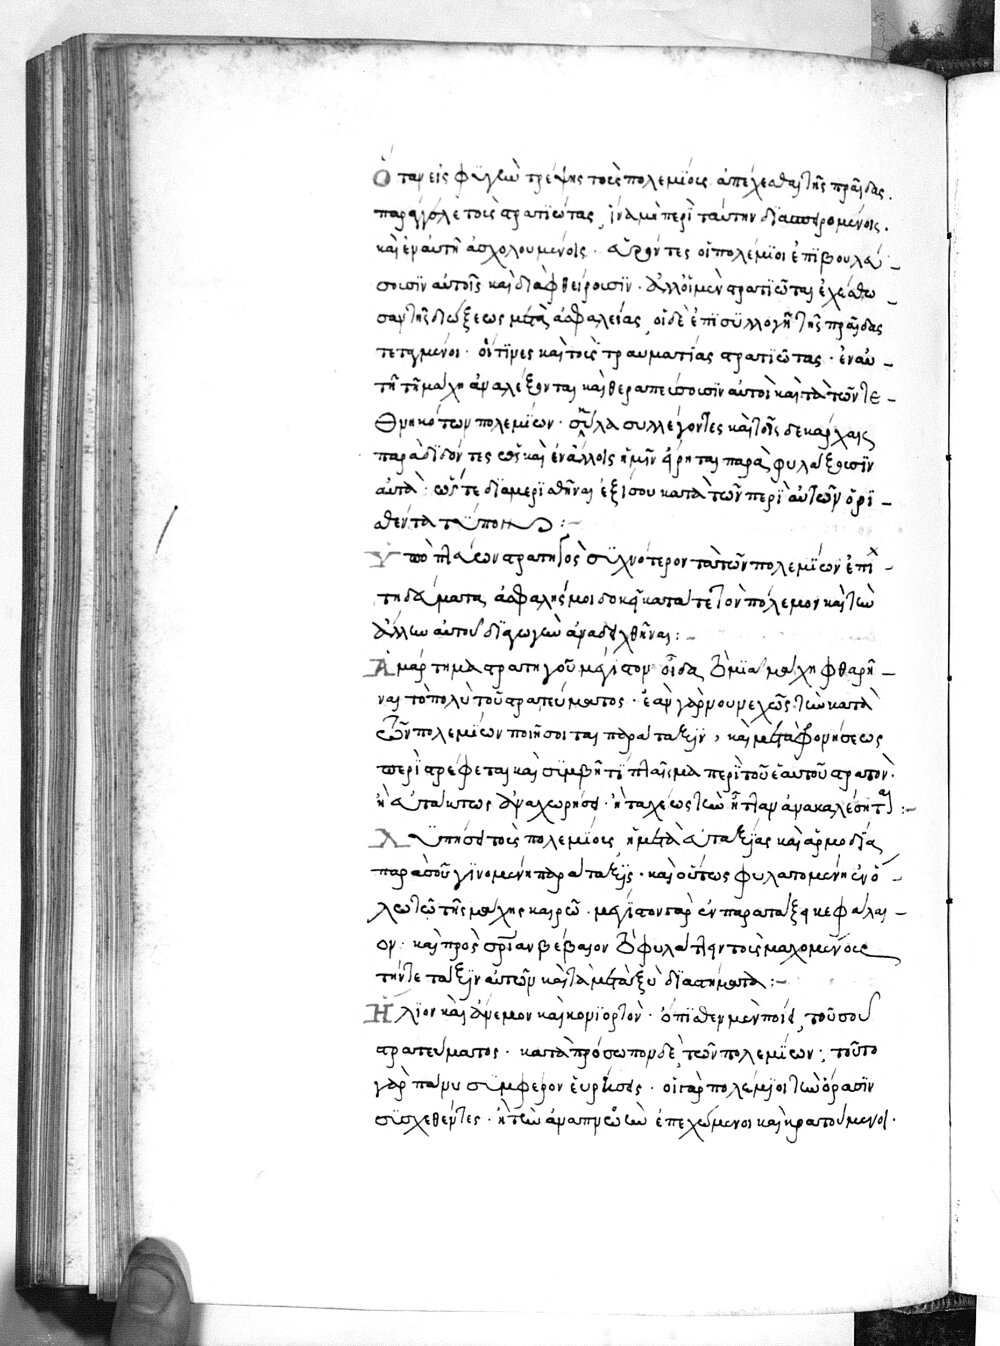 Ὅταν εἰς φυγὴν τρέψης τοὺς πολεμίους ἀπέχεσθαι τῆς πραίδας.
παράγγελε τοῖς στρατιώταις, ἵνα μὴ περὶ ταύτην διασπειρομένοις.
καὶ ἐν αὐτῆ ἀσχολουμένοις. εὑρόντες οἱ πολέμιοι ἐπιβουλεύ-
σουσιν αὐτοῖς καὶ διαφθείρουσιν. ἀλλ' οἱ μὲν στρατιῶται ἐχέσθω-
σαν τῆς διώξεως μετὰ ἀσφαλείας, οἱ δὲ ἐπὶ συλλογῆ τῆς πραίδας
τεταγμένοι. οἵτινες καὶ τοὺς τραυματίας στρατιώτας. ἐν αὐ-
τῆ τῆ μάχη ἀναλέξονται καὶ θεραπεύσουσιν αὐτοὶ καὶ τὰ τῶν τε-
θνηκότων πολεμίων. σκῦλα συλλέγοντες καὶ τοῖς δεκάρχαις
παραδιδόντες ὡς καὶ ἐν ἄλλοις ἡμῖν εἴρηται παραφυλάξουσιν
αὐτά. ὥστε διαμερισθῆναι ἐξ ἴσου κατὰ τῶν περὶ αὐτῶν ὁρι-
σθέντα τύπον:-
Ὑπὸ πλειόνων στρατηγὸς συχνότερον τὰ τῶν πολεμίων ἐπι-
τηδεύματα, ἀσφαλής μοι δοκεῖ κατά τε τὸν πόλεμον καὶ τὴν
ἄλλην αὐτοῦ διαγωγὴν ἀναδειχθῆναι:-
Ἁμάρτημα στρατηγοῦ μέγιστον οἶδα, ἐν μιᾶ μάχη φθαρῆ-
ναι τὸ πολὺ τοῦ στρατεύματος. ἐὰν γὰρ μουμεχῶς τὴν κατὰ
τῶν πολεμίων ποιήσοιται παράταξιν, καὶ μετὰ φορήσεως
περιστρέφεται καὶ συμβῆ τι πλαῖσμα περὶ τοῦ ἑαυτοῦ στρατόν.
ἢ ἀτάκτως ἀναχωρήσει. ἢ ταχέως τὴν ἧτταν ἀνακαλέσηται:-
Λυπήσει τοὺς πολεμίους, ἡ μετὰ εὐταξίας καὶ ἁρμοδίας
παρὰ σοῦ γινομένη παράταξις. καὶ οὕτως φυλαττομένη ἐν ὅ-
λω τῶ τῆς μάχης καιρῶ. μέγιστον γὰρ ἐν παρατάξει κεφάλαι-
ον. καὶ πρὸς σωτηρίαν βέβαιον τὸ φυλάττειν τοὺς μαχομένους
τήν τε τάξιν αὐτῶν καὶ τὰ μεταξὺ διαστήματα:-
Ἥλιον καὶ ἄνεμον καὶ κονιορτόν. ὄπισθεν μὲν ποίει, τοῦ σοῦ
στρατεύματος. κατὰ πρόσωπον δὲ, τῶν πολεμίων. τοῦτο
γὰρ πάνυ συμφέρον εὑρήσεις. οἱ γὰρ πολέμιοι τὴν ὅρασιν
συσχεθέντες. ἢ τὴν ἀναπνοὴν ἐπεχόμενοι καὶ κρατούμενοι.